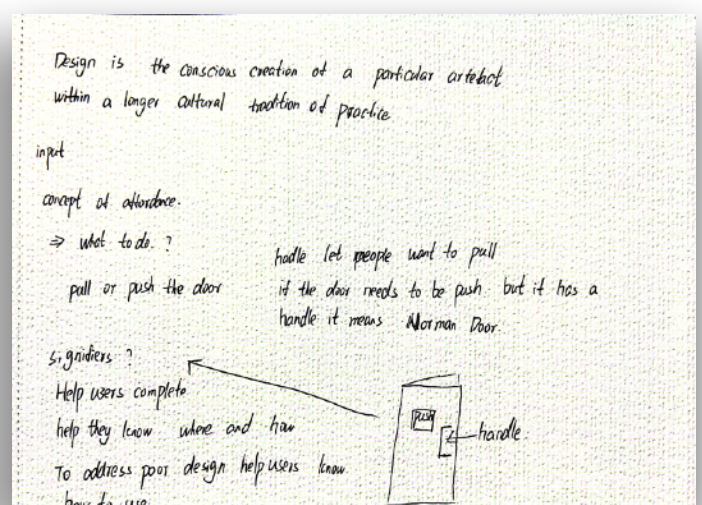 Design is the conscious creation of a particular artefact
within a longer cultural tradition of practice
input
concept of affordance.
⇒ what to do. ?
pull or push the door
hadle let people want to pull
if the door needs to be push but it has a
handle it means Norman Door.
signifiers ?
Help users complete
help they know where and how
To address poor design help users know
how to use
push
handle.